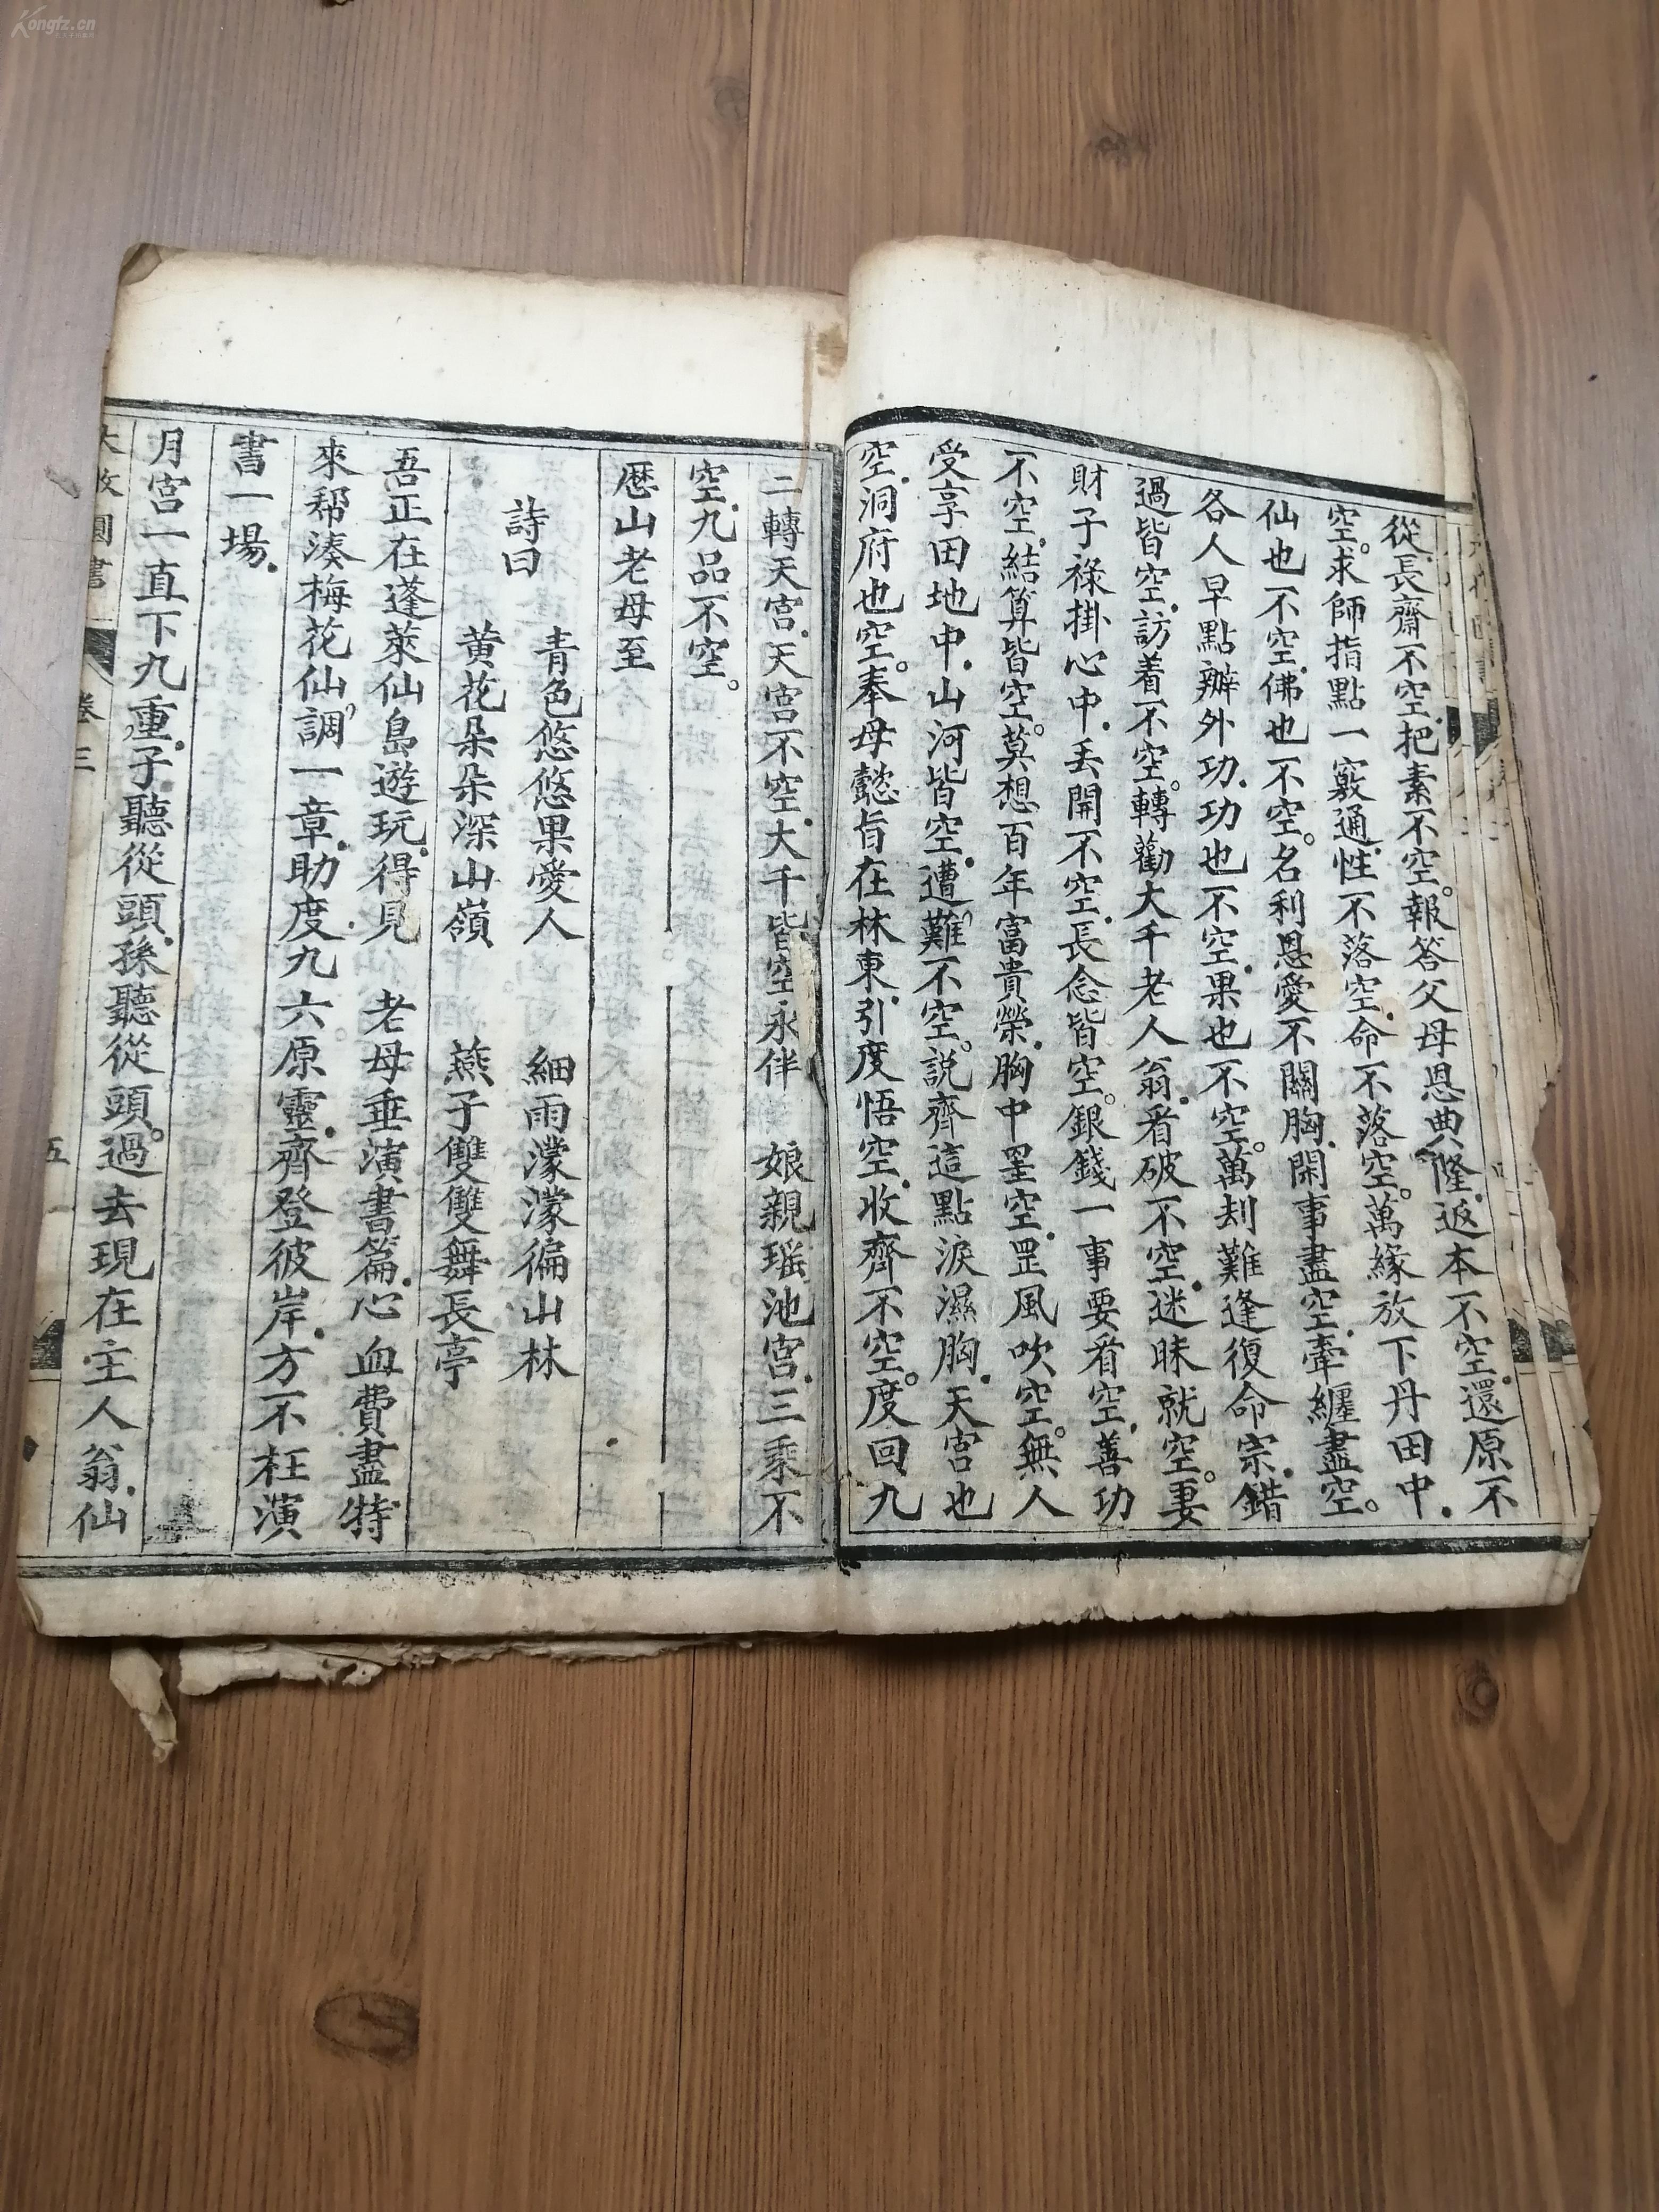 Kongfz.cn
從長齋不空把素不空報答父母恩典隆返本不空還原不
空求師指點一竅通性不落空命不落空萬緣放下丹田中
仙也不空佛也不空名利恩愛不關胸閑事盡空牽纏盡空
各人早點辦外功功也不空果也不空萬刼難逢復命宗錯
過皆空訪着不空轉勸大千老人翁看破不空迷昧就空妻
財子祿掛心中丢開不空長念皆空銀錢一事要看空善功
不空結算皆空莫想百年富貴榮胸中罣空罡風吹空無人
受享田地中山河皆空遭難不空說齊這點淚濕胸天宮也
空洞府也空奉母懿旨在林東引度悟空收齊不空度回九
二轉天宮天宮不空大千皆空永伴 娘親瑶池宮三乘不
空九品不空
厯山老母至
詩曰 青色悠悠果愛人 細雨濛濛徧山林
黄花朵朵深山嶺 燕子雙雙舞長亭
吾正在蓬萊仙島遊玩得見 老母垂演書篇心血費盡特
來帮湊梅花仙調一章助度九六原靈齊登彼岸方不枉演
書一場
月宮一直下九重子聽從頭孫聽從頭過去現在主人翁仙
圓書 卷三 五